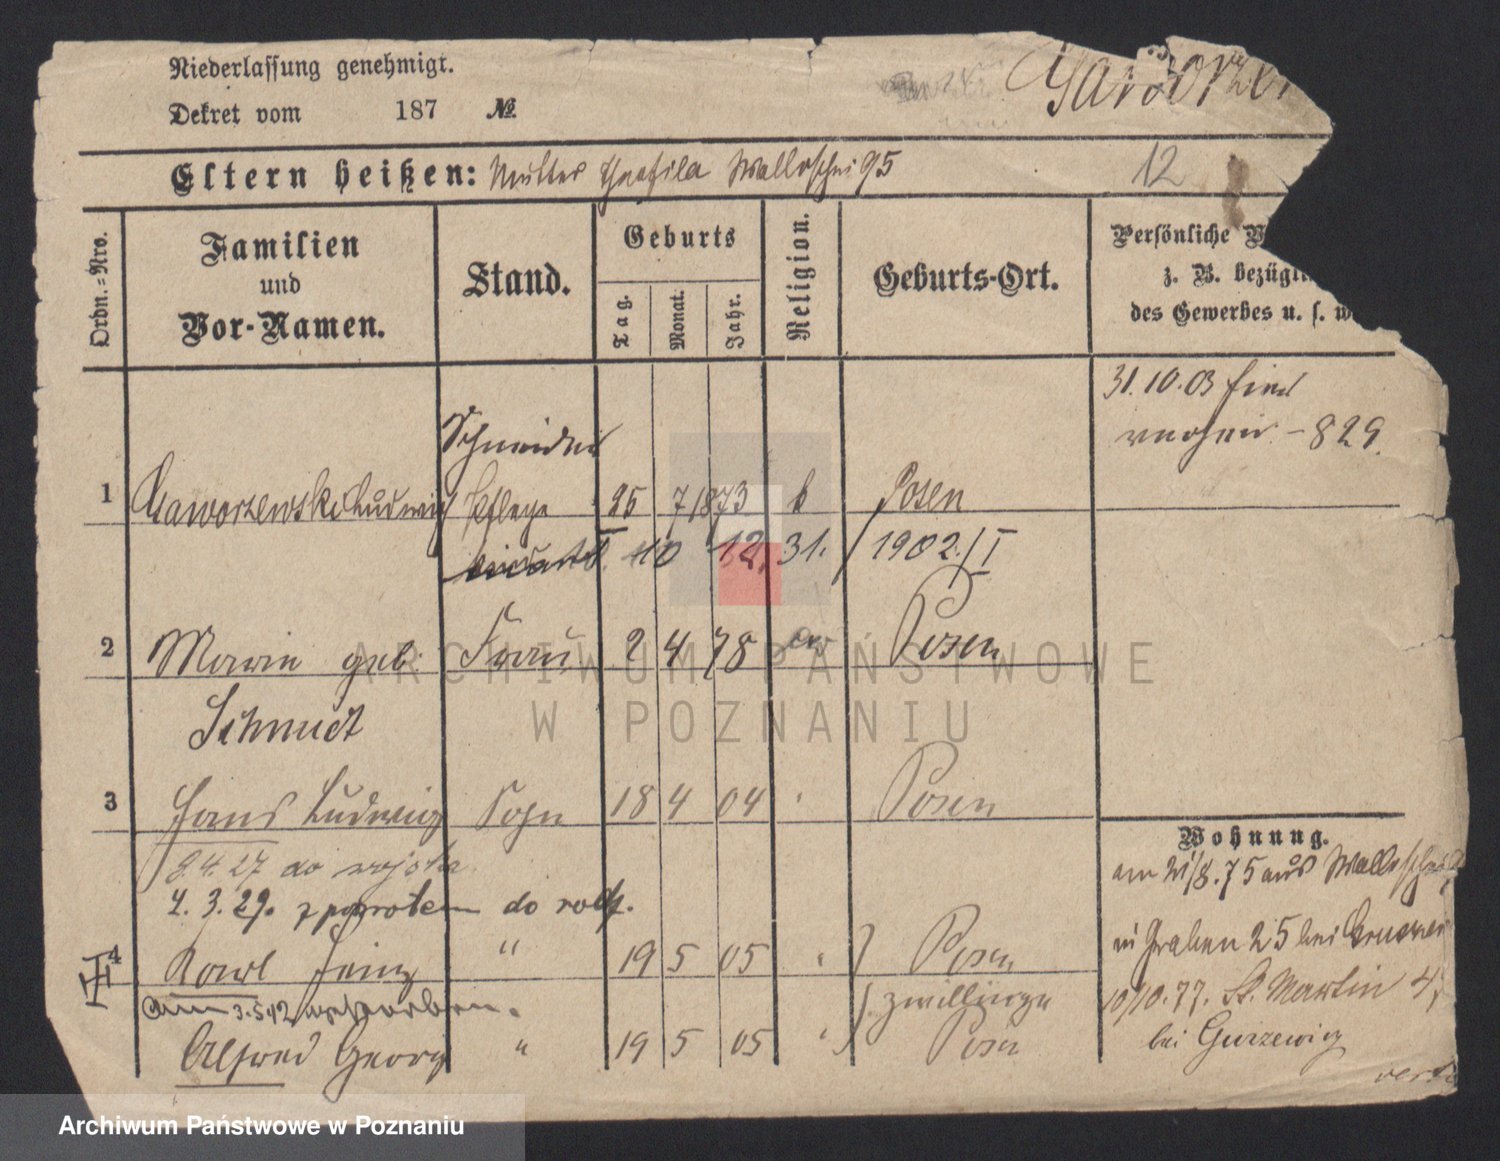 Niederlassung genehmigt.
Dekret vom 187 №
Eltern heißen: Mutter Theofila Wallischei 95
12
Ordn.-Nro.
Familien und Vor-Namen.
Stand.
Geburts
Tag.
Monat.
Jahr.
Religion.
Geburts-Ort.
Persönliche
z. B. bezügl
des Gewerbes u. s. w
31. 10. 03
829.
Schneider
1 Gaworzewski Ludwig 25 7 1873 k Posen
10 12. 31. / 1902 / I
2 Marie geb. Frau 2 4 78 Posen
Schmidt
3 Hans Ludwig Sohn 18 4 04 Posen
9.4.27 do wojska
4.3.29. z powrotem do rodz.
4 Karl Heinz " 19 5 05 Posen
am 3.5.12 verstorben.
Zwillinge
Alfred Georg " 19 5 05 Posen
Wohnung.
am 21/8.75 aus Wallischei
in Graben 25 bei
10/10.77. St. Martin 4
bei Gurzewicz
ARCHIWUM PAŃSTWOWE
W POZNANIU
Archiwum Państwowe w Poznaniu